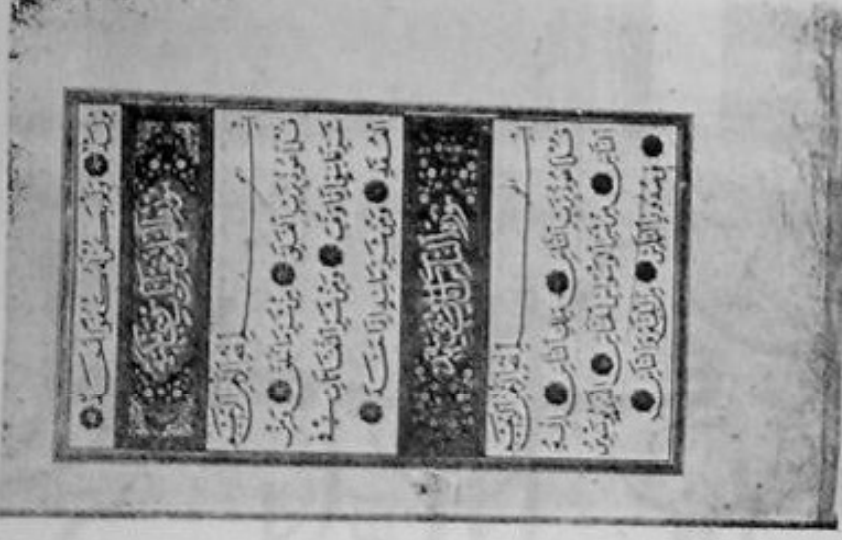 يُولَدْ وَلَمْ يَكُنْ لَهُ كُفُوًا أَحَدٌ
سورة
بِسْمِ اللَّهِ الرَّحْمَنِ الرَّحِيمِ
قُلْ أَعُوذُ بِرَبِّ الْفَلَقِ مِنْ شَرِّ مَا خَلَقَ وَمِنْ
شَرِّ غَاسِقٍ إِذَا وَقَبَ وَمِنْ شَرِّ النَّفَّاثَاتِ فِي
الْعُقَدِ وَمِنْ شَرِّ حَاسِدٍ إِذَا حَسَدَ
سورة
بِسْمِ اللَّهِ الرَّحْمَنِ الرَّحِيمِ
قُلْ أَعُوذُ بِرَبِّ النَّاسِ مَلِكِ النَّاسِ إِلَهِ
النَّاسِ مِنْ شَرِّ الْوَسْوَاسِ الْخَنَّاسِ الَّذِي يُوَسْوِسُ
فِي صُدُورِ النَّاسِ مِنَ الْجِنَّةِ وَالنَّاسِ